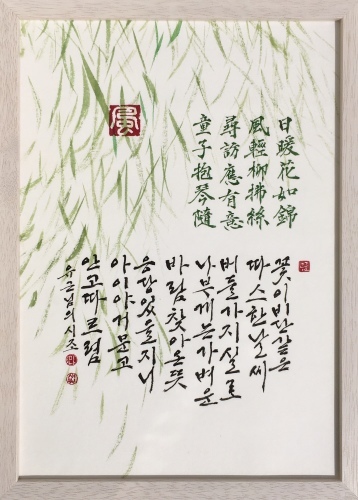 日暖花如錦
風輕柳拂絲
尋訪應有意
童子抱琴隨
風
꽃이비단같은
따스한날씨
버들가지실로
나부께는가벼운
바람찾아온뜻
응당있을지니
아이야거문고
안고따르렴
유근님의시조